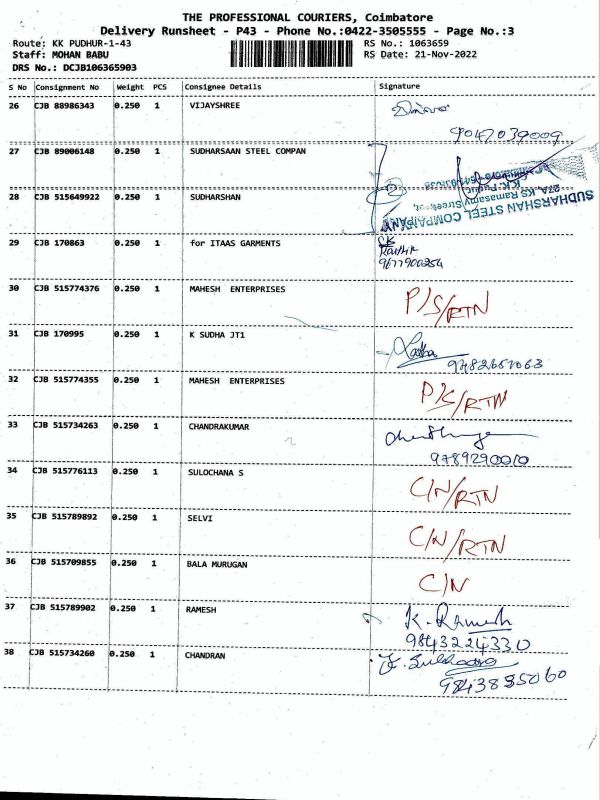 THE PROFESSIONAL COURIERS, Coimbatore
Delivery Runsheet - P43 - Phone No.:0422-3505555 - Page No.:3
Route: KK PUDHUR-1-43 RS No.: 1063659
Staff: MOHAN BABU RS Date: 21-Nov-2022
DRS No.: DCJB106365903
S No Consignment No Weight PCS Consignee Details Signature
26 CJB 88986343 0.250 1 VIJAYSHREE
9047039009
27 CJB 89006148 0.250 1 SUDHARSAAN STEEL COMPAN
28 CJB 515649922 0.250 1 SUDHARSHAN
SUDHARSHAN STEEL COMPANY
27A, KS Ramasamy Street,
K.K. Pudur
29 CJB 170863 0.250 1 for ITAAS GARMENTS
9677900254
30 CJB 515774376 0.250 1 MAHESH ENTERPRISES P/S/RTN
31 CJB 170995 0.250 1 K SUDHA JT1
32 CJB 515774355 0.250 1 MAHESH ENTERPRISES P/S/RTN
33 CJB 515734263 0.250 1 CHANDRAKUMAR
9789290010
34 CJB 515776113 0.250 1 SULOCHANA S C/N/RTN
35 CJB 515789892 0.250 1 SELVI C/N/RTN
36 CJB 515709855 0.250 1 BALA MURUGAN C/N
37 CJB 515789902 0.250 1 RAMESH K. Ramesh
9843224330
38 CJB 515734260 0.250 1 CHANDRAN
9843835060